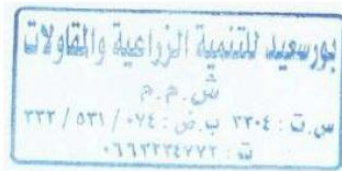 بورسعيد للتنمية الزراعية والمقاولات
ش.م.م
س.ت : ٣٣٠٤ ب.ض : ٠٧٤ / ٥٣١ / ٣٣٢
ت : ٠٦٦٣٣٣٤٧٧٢